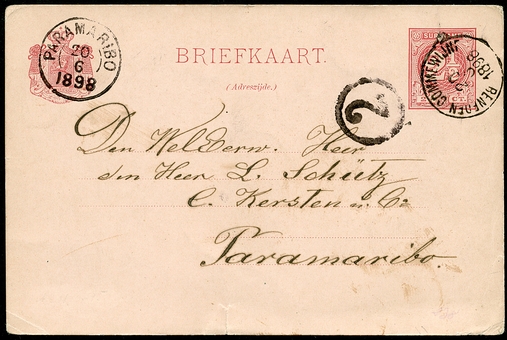 PARAMARIBO
20
6
1898
BRIEFKAART.
(Adreszijde.)
BENEDEN COMMEWIJNE
1898
2
Den WelEerw. Heer
den Heer L. Schütz
C. Kersten u. Co
Paramaribo.